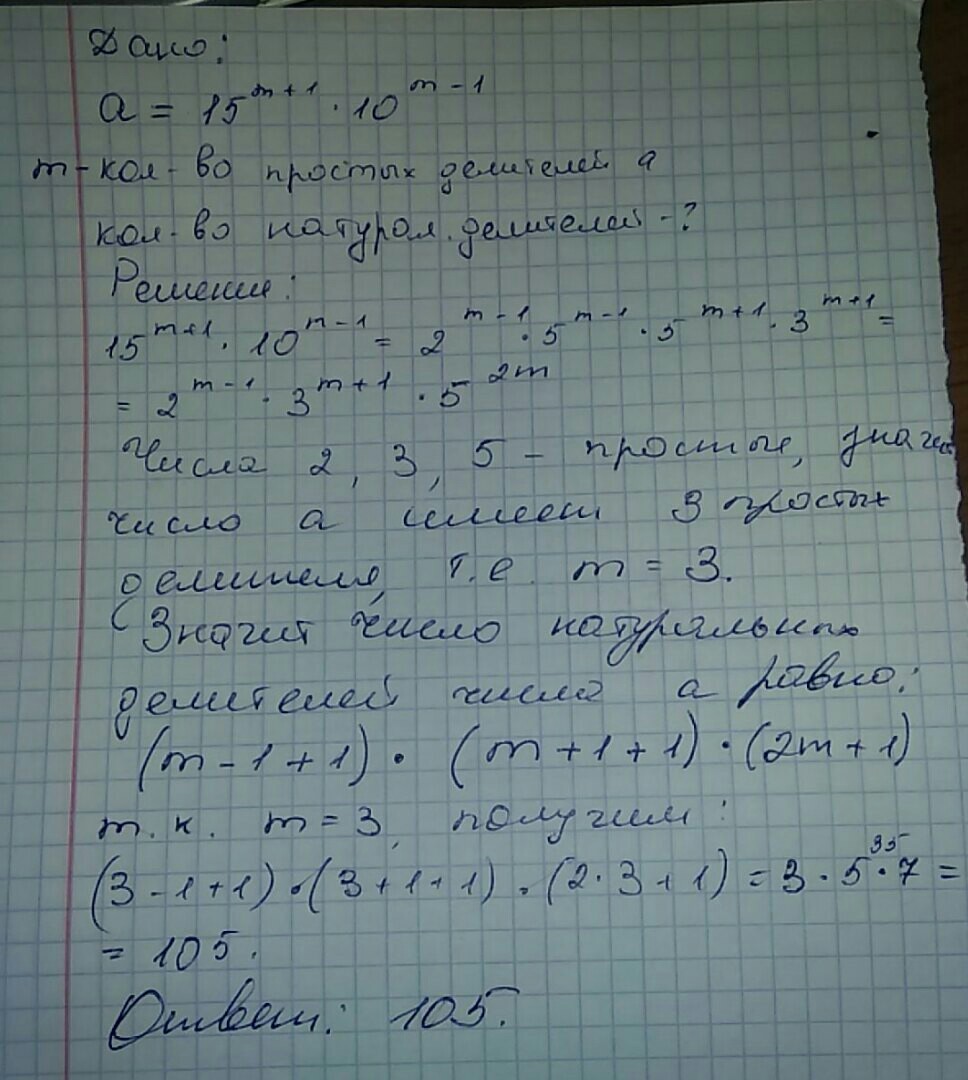 Дано:
a = 15^{m+1} · 10^{m-1}
m - кол-во простых делителей a
кол-во натурал. делителей - ?
Решение:
15^{m+1} · 10^{m-1} = 2^{m-1} · 5^{m-1} · 5^{m+1} · 3^{m+1} =
= 2^{m-1} · 3^{m+1} · 5^{2m}
Числа 2, 3, 5 - простые, значит
число a имеет 3 простых
делителя, т.е. m = 3.
Значит число натуральных
делителей числа a равно:
(m-1+1) · (m+1+1) · (2m+1)
т.к. m = 3, получим:
(3-1+1) · (3+1+1) · (2·3+1) = 3 · 5 · 7 =
35
= 105.
Ответ: 105.